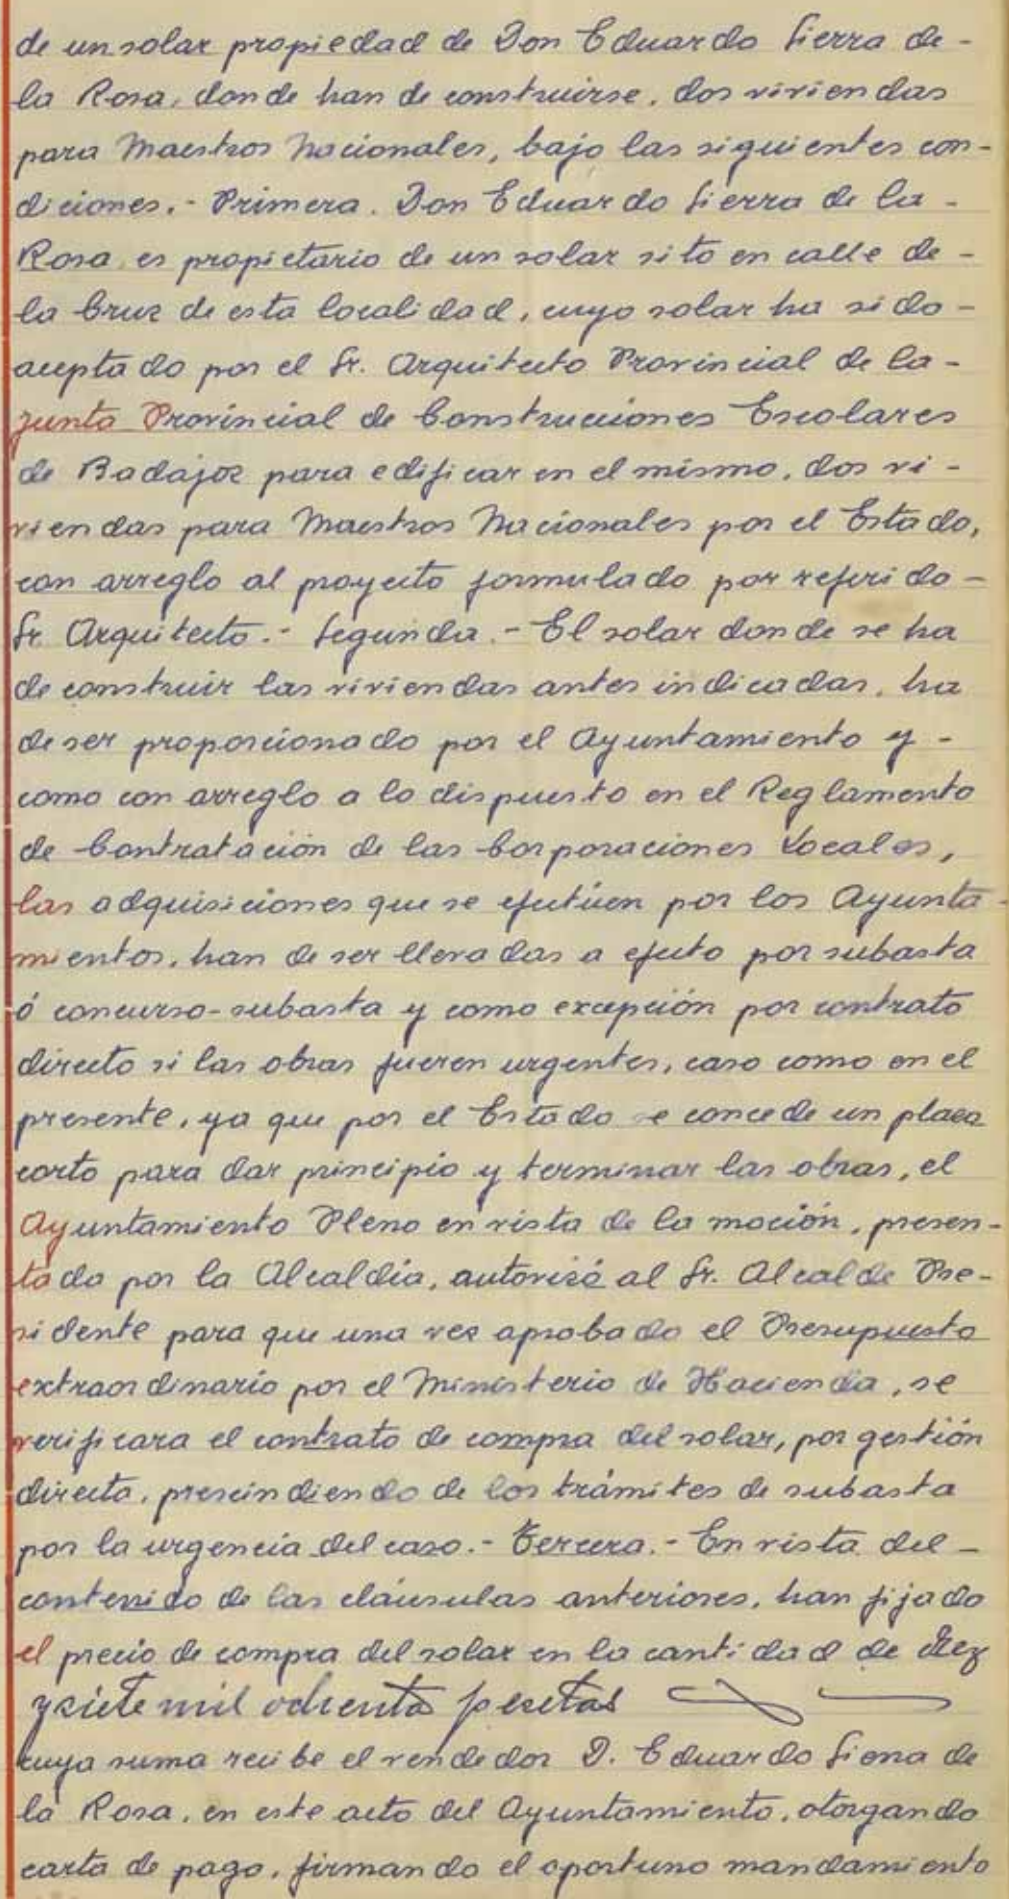 de un solar propiedad de Don Eduardo Sierra de-
la Rosa, donde han de construirse, dos viviendas
para Maestros Nacionales, bajo las siguientes con-
diciones.- Primera. Don Eduardo Sierra de la-
Rosa es propietario de un solar sito en calle de-
la Cruz de esta localidad, cuyo solar ha sido-
aceptado por el Sr. Arquitecto Provincial de la-
Junta Provincial de Construcciones Escolares
de Badajoz para edificar en el mismo, dos vi-
viendas para Maestros Nacionales por el Estado,
con arreglo al proyecto formulado por referido-
Sr. Arquitecto.- Segunda.- El solar donde se ha
de construir las viviendas antes indicadas, ha
de ser proporcionado por el Ayuntamiento y-
como con arreglo a lo dispuesto en el Reglamento
de Contratación de las Corporaciones Locales,
las adquisiciones que se efectúen por los Ayunta-
mientos, han de ser llevadas a efecto por subasta
ó concurso-subasta y como excepción por contrato
directo si las obras fueren urgentes, caso como en el
presente, ya que por el Estado se concede un plazo
corto para dar principio y terminar las obras, el
Ayuntamiento Pleno en vista de la moción, presen-
tada por la Alcaldía, autorizó al Sr. Alcalde Pre-
sidente para que una vez aprobado el Presupuesto
extraordinario por el Ministerio de Hacienda, se
verificara el contrato de compra del solar, por gestión
directa, prescindiendo de los trámites de subasta
por la urgencia del caso.- Tercera.- En vista del-
contenido de las cláusulas anteriores, han fijado
el precio de compra del solar en la cantidad de diez
y siete mil ochenta pesetas
cuya suma recibe el vendedor D. Eduardo Sierra de
la Rosa, en este acto del Ayuntamiento, otorgando
carta de pago, firmando el oportuno mandamiento